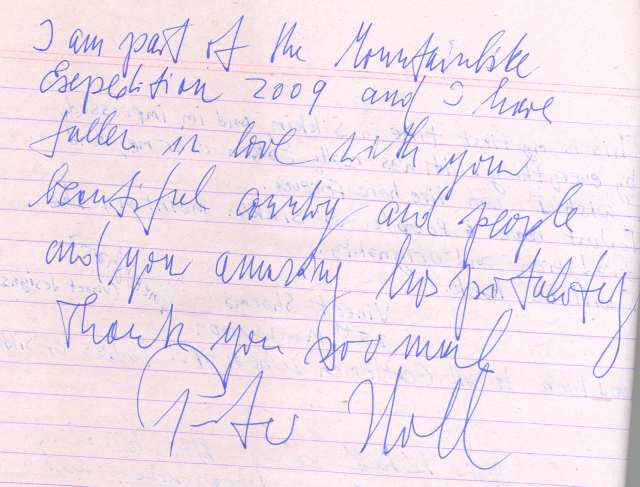 I am part of the Mountainbike
Exepedition 2009 and I have
fallen in love with your
beautiful country and people
and your amazing hospitality
Thank you soo much
Peter Holl